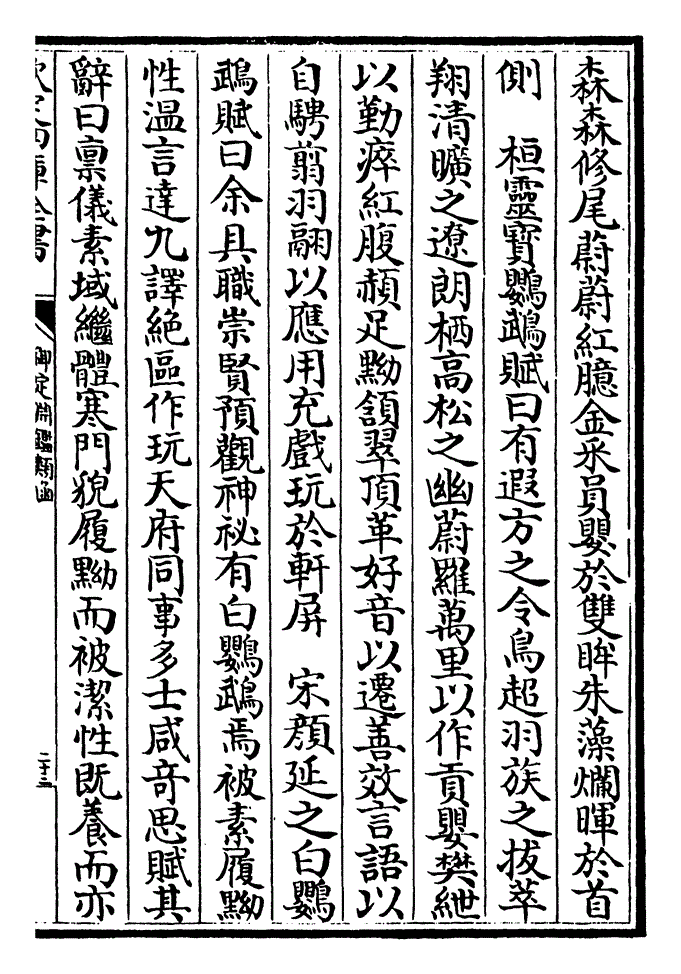 森森修尾蔚蔚紅臆金采員嬰於雙眸朱藻爛暉於首
側　桓靈寶鸚鵡賦曰有遐方之令鳥超羽族之拔萃
翔清曠之遼朗栖高松之幽蔚羅萬里以作貢嬰樊紲
以勤瘁紅腹赬足黝頷翠頂革好音以遷善效言語以
自騁翦羽翮以應用充戲玩於軒屏　宋顏延之白鸚
鵡賦曰余具職崇賢預觀神祕有白鸚鵡焉被素履黝
性温言達九譯絶區作玩天府同事多士咸奇思賦其
辭曰禀儀素域繼體寒門貌履黝而被潔性既養而亦
欽定四庫全書
御定淵鑑類函
二十三